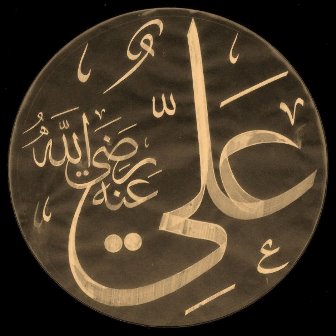 علي
رضي الله عنه